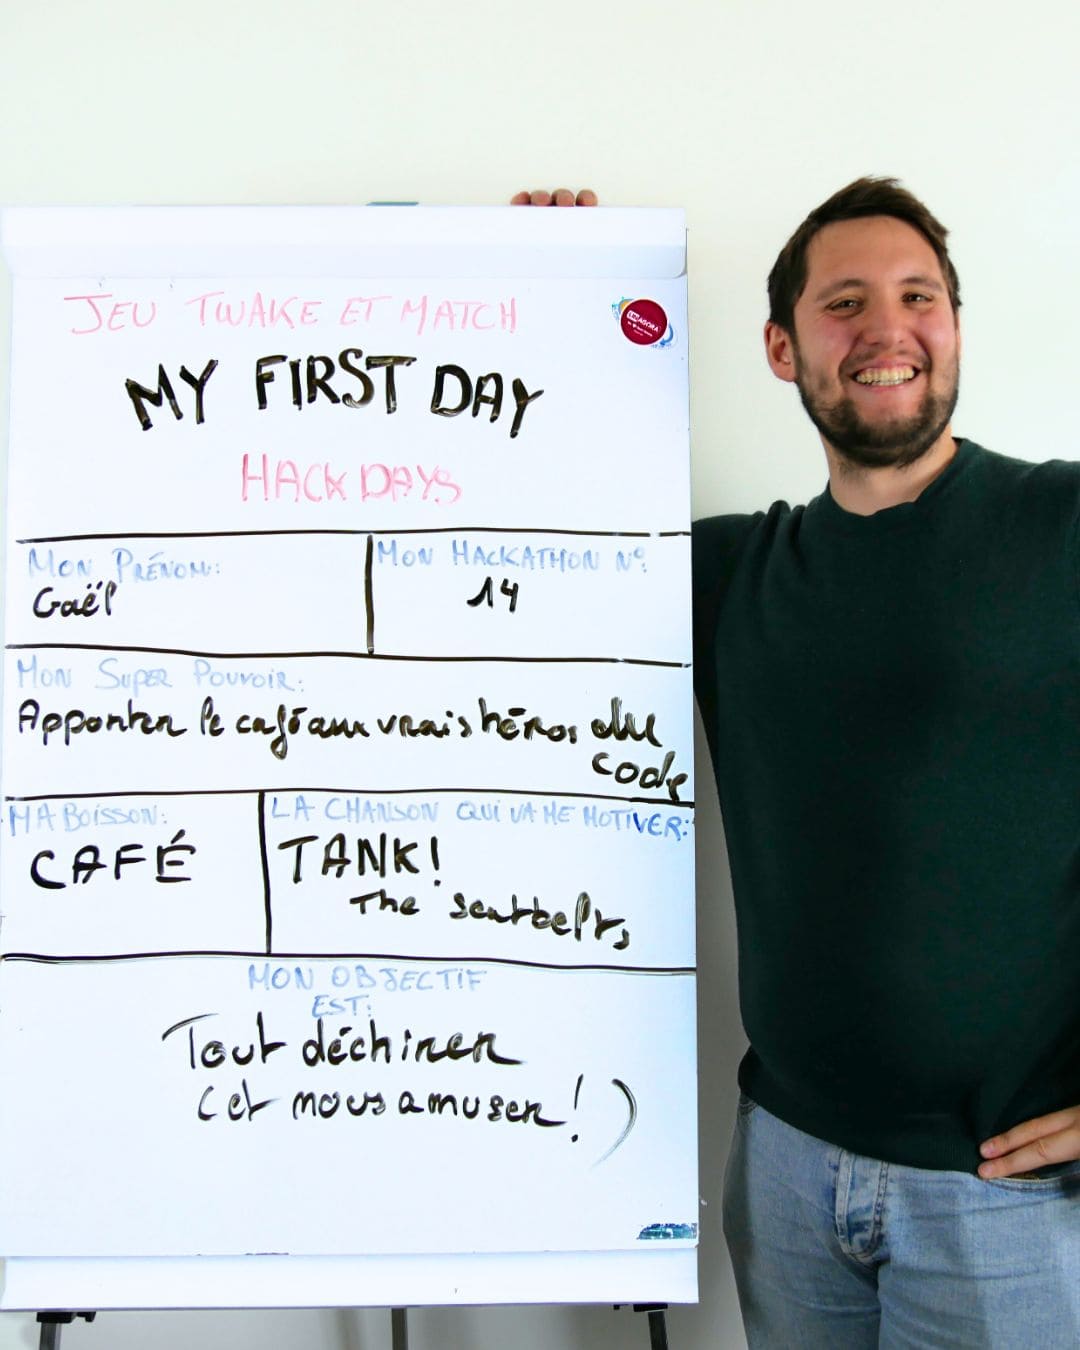 JEU TWAKE ET MATCH
LINAGORA
MY FIRST DAY
HACK DAYS
MON PRÉNOM:
Gaël
MON HACKATHON N°:
14
MON SUPER POUVOIR:
Apporter le café aux vrais héros du
code
MA BOISSON:
CAFÉ
LA CHANSON QUI VA ME MOTIVER:
TANK!
The seatbelts
MON OBJECTIF
EST:
Tout déchirer
(et nous amuser!)